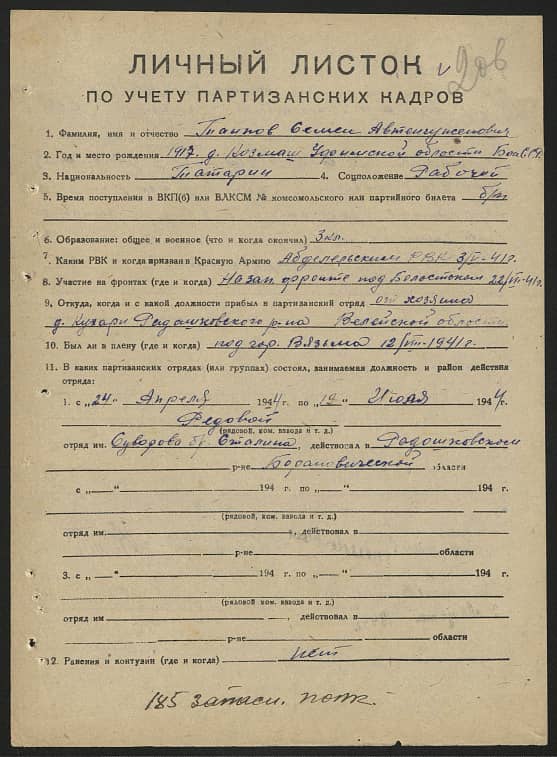 ЛИЧНЫЙ ЛИСТОК
206
ПО УЧЕТУ ПАРТИЗАНСКИХ КАДРОВ
1. Фамилия, имя и отчество Таипов Семен
2. Год и место рождения 1917 д. Козмаш области
3. Национальность Татарин 4. Соцположение Рабочий
5. Время поступления в ВКП(б) или ВЛКСМ № комсомольского или партийного билета б/п
6. Образование: общее и военное (что и когда окончил) 3 кл.
7. Каким РВК и когда призван в Красную Армию РВК 3/VI-41г.
8. Участие на фронтах (где и когда) На зап. фронте под Белостоком 22/VI-41г.
9. Откуда, когда и с какой должности прибыл в партизанский отряд от хозяина
д. Кухари Радошковского р-на Вилейской области
10. Был ли в плену (где и когда) под гор. Вязьма 12/VIII-1941г.
11. В каких партизанских отрядах (или группах) состоял, занимаемая должность и район действия
отряда:
1. с „24“ Апреля 1944 г. по „19“ Июля 1944 г.
Рядовой
(рядовой, ком. взвода и т. д.)
отряд им. Суворова бр. Сталина, действовал в Радошковском
р-не Барановической области
с „ “ 194 г. по „ “ 194 г.
(рядовой, ком. взвода и т. д.)
отряд им. , действовал в
р-не области
3. с „ “ 194 г. по „ “ 194 г.
(рядовой, ком. взвода и т. д.)
отряд им , действовал в
р-не области
12. Ранения и контузии (где и когда) нет
185 запасн. полк.